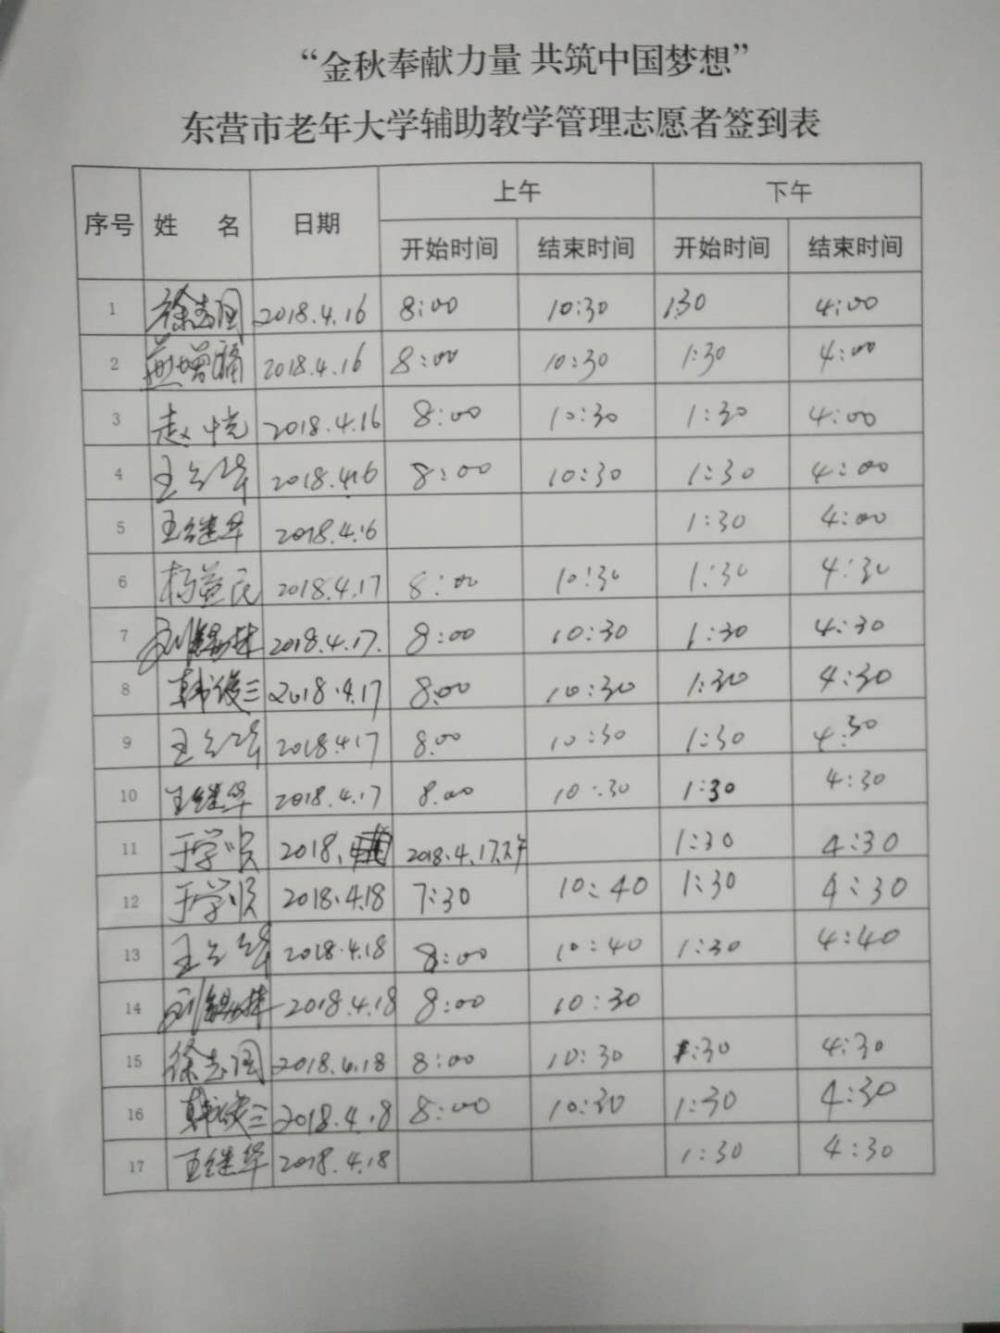 “金秋奉献力量 共筑中国梦想”
东营市老年大学辅助教学管理志愿者签到表
序号 姓 名 日期 上午 下午
开始时间 结束时间 开始时间 结束时间
1 徐志国 2018.4.16 8:00 10:30 1:30 4:00
2 2018.4.16 8:00 10:30 1:30 4:00
3 赵 悦 2018.4.16 8:00 10:30 1:30 4:00
4 王 2018.4.16 8:00 10:30 1:30 4:00
5 王继华 2018.4.16 1:30 4:00
6 杨益民 2018.4.17 8:00 10:30 1:30 4:30
7 刘锡林 2018.4.17. 8:00 10:30 1:30 4:30
8 韩俊三 2018.4.17 8:00 10:30 1:30 4:30
9 王 2018.4.17 8:00 10:30 1:30 4:30
10 王继华 2018.4.17 8:00 10:30 1:30 4:30
11 于学顺 2018. 2018.4.17下午 1:30 4:30
12 于学顺 2018.4.18 7:30 10:40 1:30 4:30
13 王 2018.4.18 8:00 10:40 1:30 4:40
14 刘锡林 2018.4.18 8:00 10:30
15 徐志国 2018.4.18 8:00 10:30 1:30 4:30
16 韩俊三 2018.4.18 8:00 10:30 1:30 4:30
17 王继华 2018.4.18 1:30 4:30